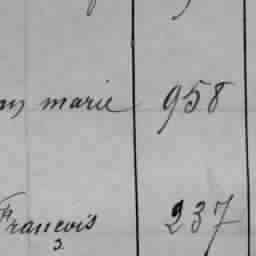 marie 958
Francois 237
3.